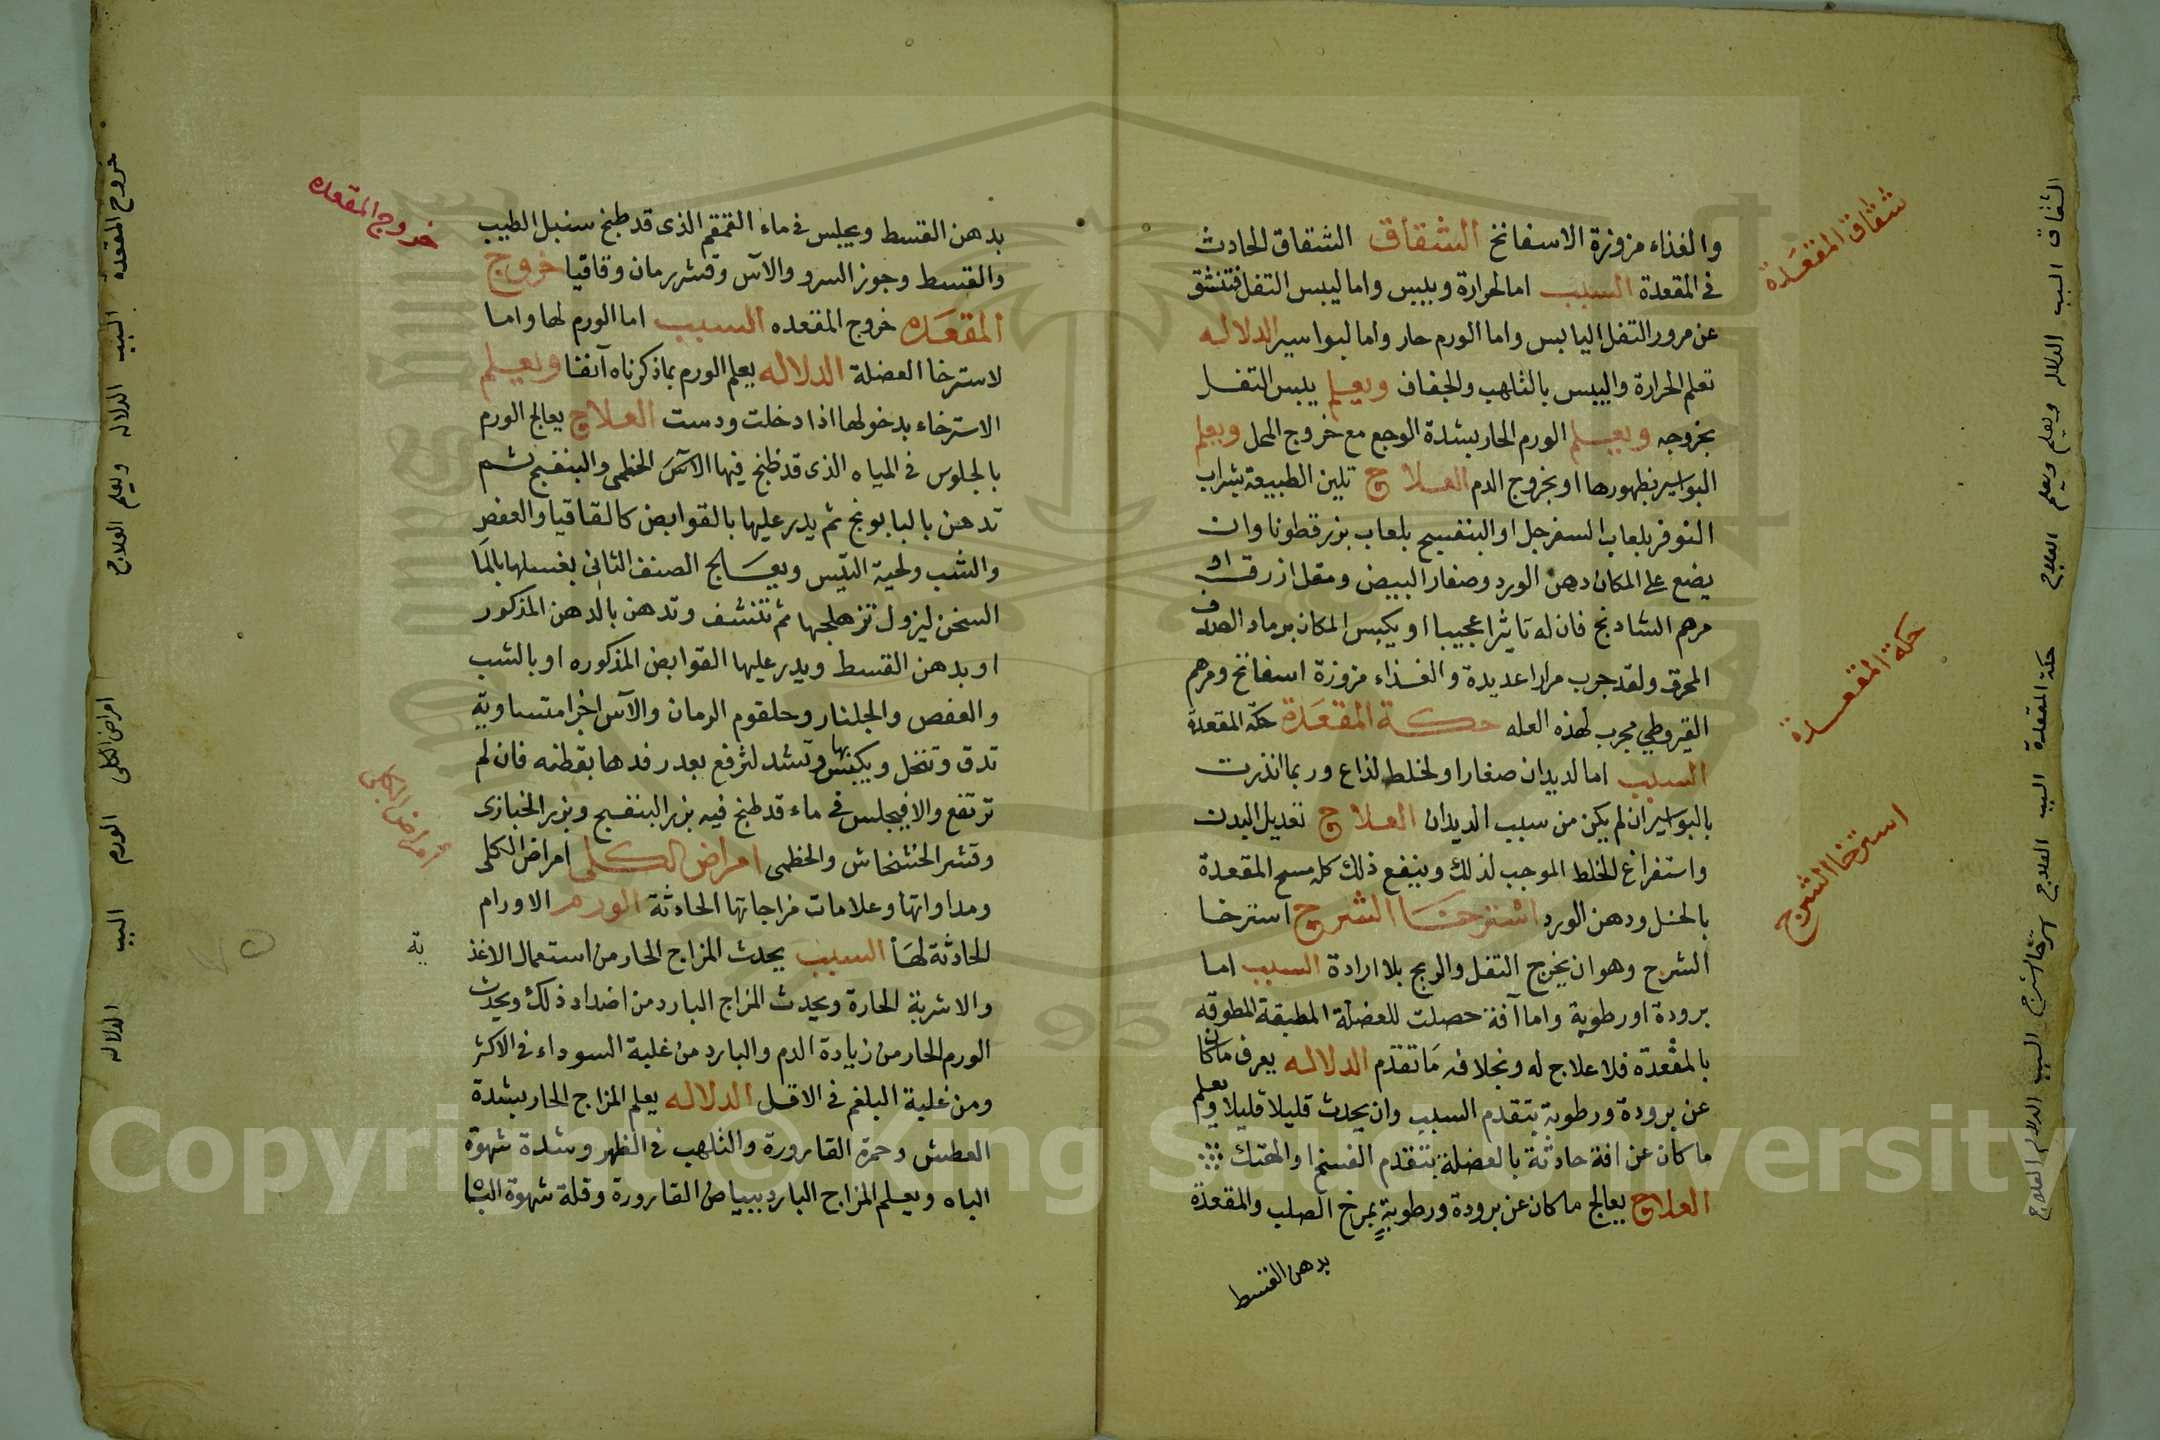 والغذاء مزوزة الاسفانخ الشقاق الشقاق الحادث
فى المقعدة السبب اما لحرارة ويبس واما ليبس التفل فتنشق
عن مرور التفل اليابس واما الورم حار واما لبواسير الدلاله
تعلم الحرارة واليبس بالتلهب والجفاف ويعلم يبس التفل
بخروجه ويعلم الورم الحار بشدة الوجع مع خروج المحل ويعلم
البواسير بظهورها او بخروج الدم العلاج تلين الطبيعة بشراب
النوفر بلعاب السفرجل او البنفسج بلعاب بزر قطونا وان
يضع على المكان دهن الورد وصفار البيض ومقل ازرق او
مرهم الشادنج فان له تاثيرا عجيبا او يكبس المكان برماد الصدف
المحرق ولقد جرب مرارا عديدة والغذاء مزوزة اسفانخ ومرهم
القيروطي مجرب لهذه العله حكة المقعدة حكة المقعدة
السبب اما لديدان صغار او لخلط لذاع وربما انذرت
بالبواسير ان لم يكن من سبب الديدان العلاج تعديل البدن
واستفراغ الخلط الموجب لذلك وينفع ذلك كله مسح المقعدة
بالخل ودهن الورد استرخا الشرج استرخا
الشرج وهو ان يخرج التفل والريح بلا ارادة السبب اما
برودة او رطوبة واما آفة حصلت للعضلة المطبقة المطوقه
بالمقعدة فلا علاج له وبخلافه ما تقدم الدلاله يعرف ما كان
عن برودة ورطوبة بتقدم السبب وان يحدث قليلا قليلا ويعلم
ما كان عن افة حادثة بالعضلة بتقدم الفسخ او الهتك
العلاج يعالج ما كان عن برودة ورطوبة بمرخ الصلب والمقعدة
بدهن القسط
شقاق المقعدة
حكة المقعدة
استرخا الشرج
الشقاق السبب الدلاله ويعلم ويعلم العلاج
حكة المقعدة السبب العلاج استرخا الشرج السبب الدلاله العلاج
بدهن القسط ويجلس فى ماء القمقم الذى قد طبخ سنبل الطيب
والقسط وجوز السرو والآس وقشر رمان وقاقيا خروج
المقعده خروج المقعده السبب اما الورم لها واما
لاسترخا العضلة الدلاله يعلم الورم بما ذكرناه آنفا ويعلم
الاسترخاء بدخولها اذا دخلت ودست العلاج يعالج الورم
بالجلوس فى المياه الذى قد طبخ فيها الآس الخطمى والبنفسج ثم
تدهن بالبابونج ثم يدر عليها بالقوابض كالقاقيا والعفص
والشب ولحية التيس ويعالج الصنف الثانى بغسلها بالما
السخن ليزول تزهلجها ثم تنشف وتدهن بالدهن المذكور
او بدهن القسط ويدر عليها القوابض المذكوره او بالشب
والعفص والجلنار وحلقوم الرمان والآس اجزا متساوية
تدق وتنخل ويكبس بها وتشد لترفع بعد رفدها بقطنه فان لم
ترتفع والا فيجلس فى ماء قد طبخ فيه بزر البنفسج وبزر الخبازى
وقشر الخشخاش والخطمى امراض الكلى امراض الكلى
ومداواتها وعلامات مزاجاتها الحادثة الورم الاورام
الحادثة لها السبب يحدث المزاج الحار من استعمال الاغذ
ية
والاشربة الحارة ويحدث المزاج البارد من اضداد ذلك ويحدث
الورم الحار من زيادة الدم والبارد من غلبة السوداء فى الاكثر
ومن غلبة البلغم فى الاقل الدلاله يعلم المزاج الحار بشدة
العطش وحمرة القارورة والتلهب فى الظهر وشدة شهوة
الباه ويعلم المزاج البارد ببياض القارورة وقلة شهوة الباه
خروج المقعده
امراض الكلى
خروج المقعدة السبب الدلاله ويعلم العلاج
امراض الكلى الورم السبب الدلاله
٧٥
Copyright © King Saud University